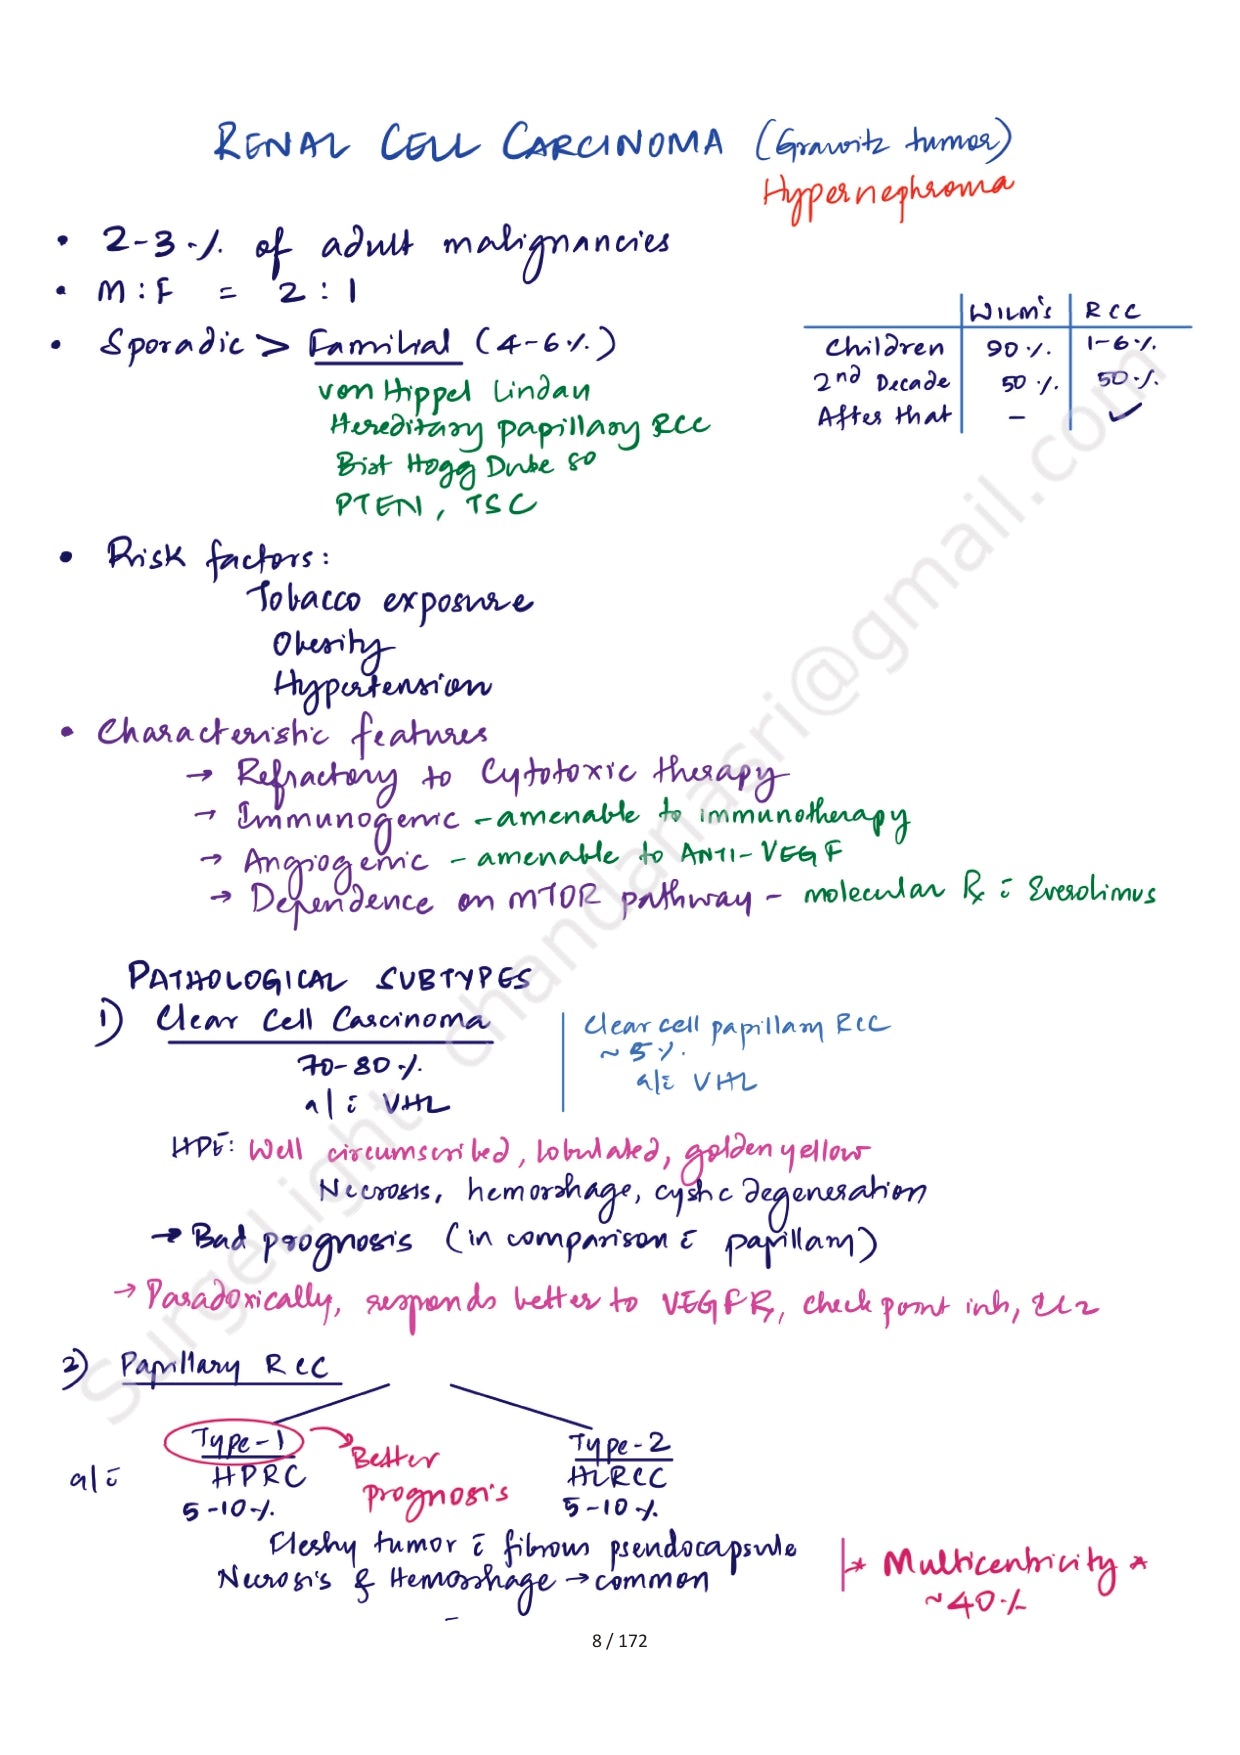 RENAL CELL CARCINOMA (Grawitz tumor)
Hypernephroma
• 2-3% of adult malignancies
• M:F = 2:1
• Sporadic > Familial (4-6%)
von Hippel Lindau
Hereditary papillary RCC
Birt Hogg Dube so
PTEN, TSC
WILM'S RCC
Children 90% 1-6%
2nd Decade 50% 50%
After that - ✓
• Risk factors:
Tobacco exposure
Obesity
Hypertension
• Characteristic features
→ Refractory to Cytotoxic therapy
→ Immunogenic - amenable to immunotherapy
→ Angiogenic - amenable to ANTI-VEGF
→ Dependence on mTOR pathway - molecular Rx c̄ Everolimus
PATHOLOGICAL SUBTYPES
1) Clear Cell Carcinoma
70-80%
a/c̄ VHL
Clear cell papillary RCC
~ 5%
a/c̄ VHL
HPE: Well circumscribed, lobulated, golden yellow
Necrosis, hemorrhage, cystic degeneration
→ Bad prognosis (in comparison c̄ papillary)
→ Paradoxically, responds better to VEGFR, check point inh, IL2
2) Papillary RCC
Type-1 → Better prognosis
Type-2
a/c̄ HPRC HLRCC
5-10% 5-10%
Fleshy tumor c̄ fibrous pseudocapsule
Necrosis & Hemorrhage → common
* Multicentricity *
~40%
8 / 172
SurgeLight chandanasri@gmail.com